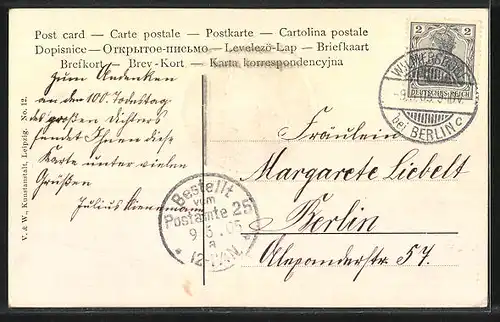 Post card — Carte postale — Postkarte — Cartolina postale
Dopisnice — Открытое письмо — Levelezö-Lap — Briefkaart
Brefkort — Brev-Kort — Karta korrespondencyjna
2 2
DEUTSCHES REICH
WILMERSDORF
bei BERLIN c
Zum Andenken
an den 100. Todestag
des großen Dichters
sendet Ihnen diese
Karte unter vielen
Grüßen
Julius
Fräulein
Margarete Liebelt
Berlin
Alexanderstr 57.
Bestellt
vom
Postamte 25
9 5 . 05
a
12-1/4N.
V. & W., Kunstanstalt, Leipzig. No. 12.